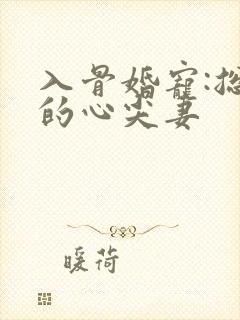 入骨婚宠:总
的心尖妻
暖荷